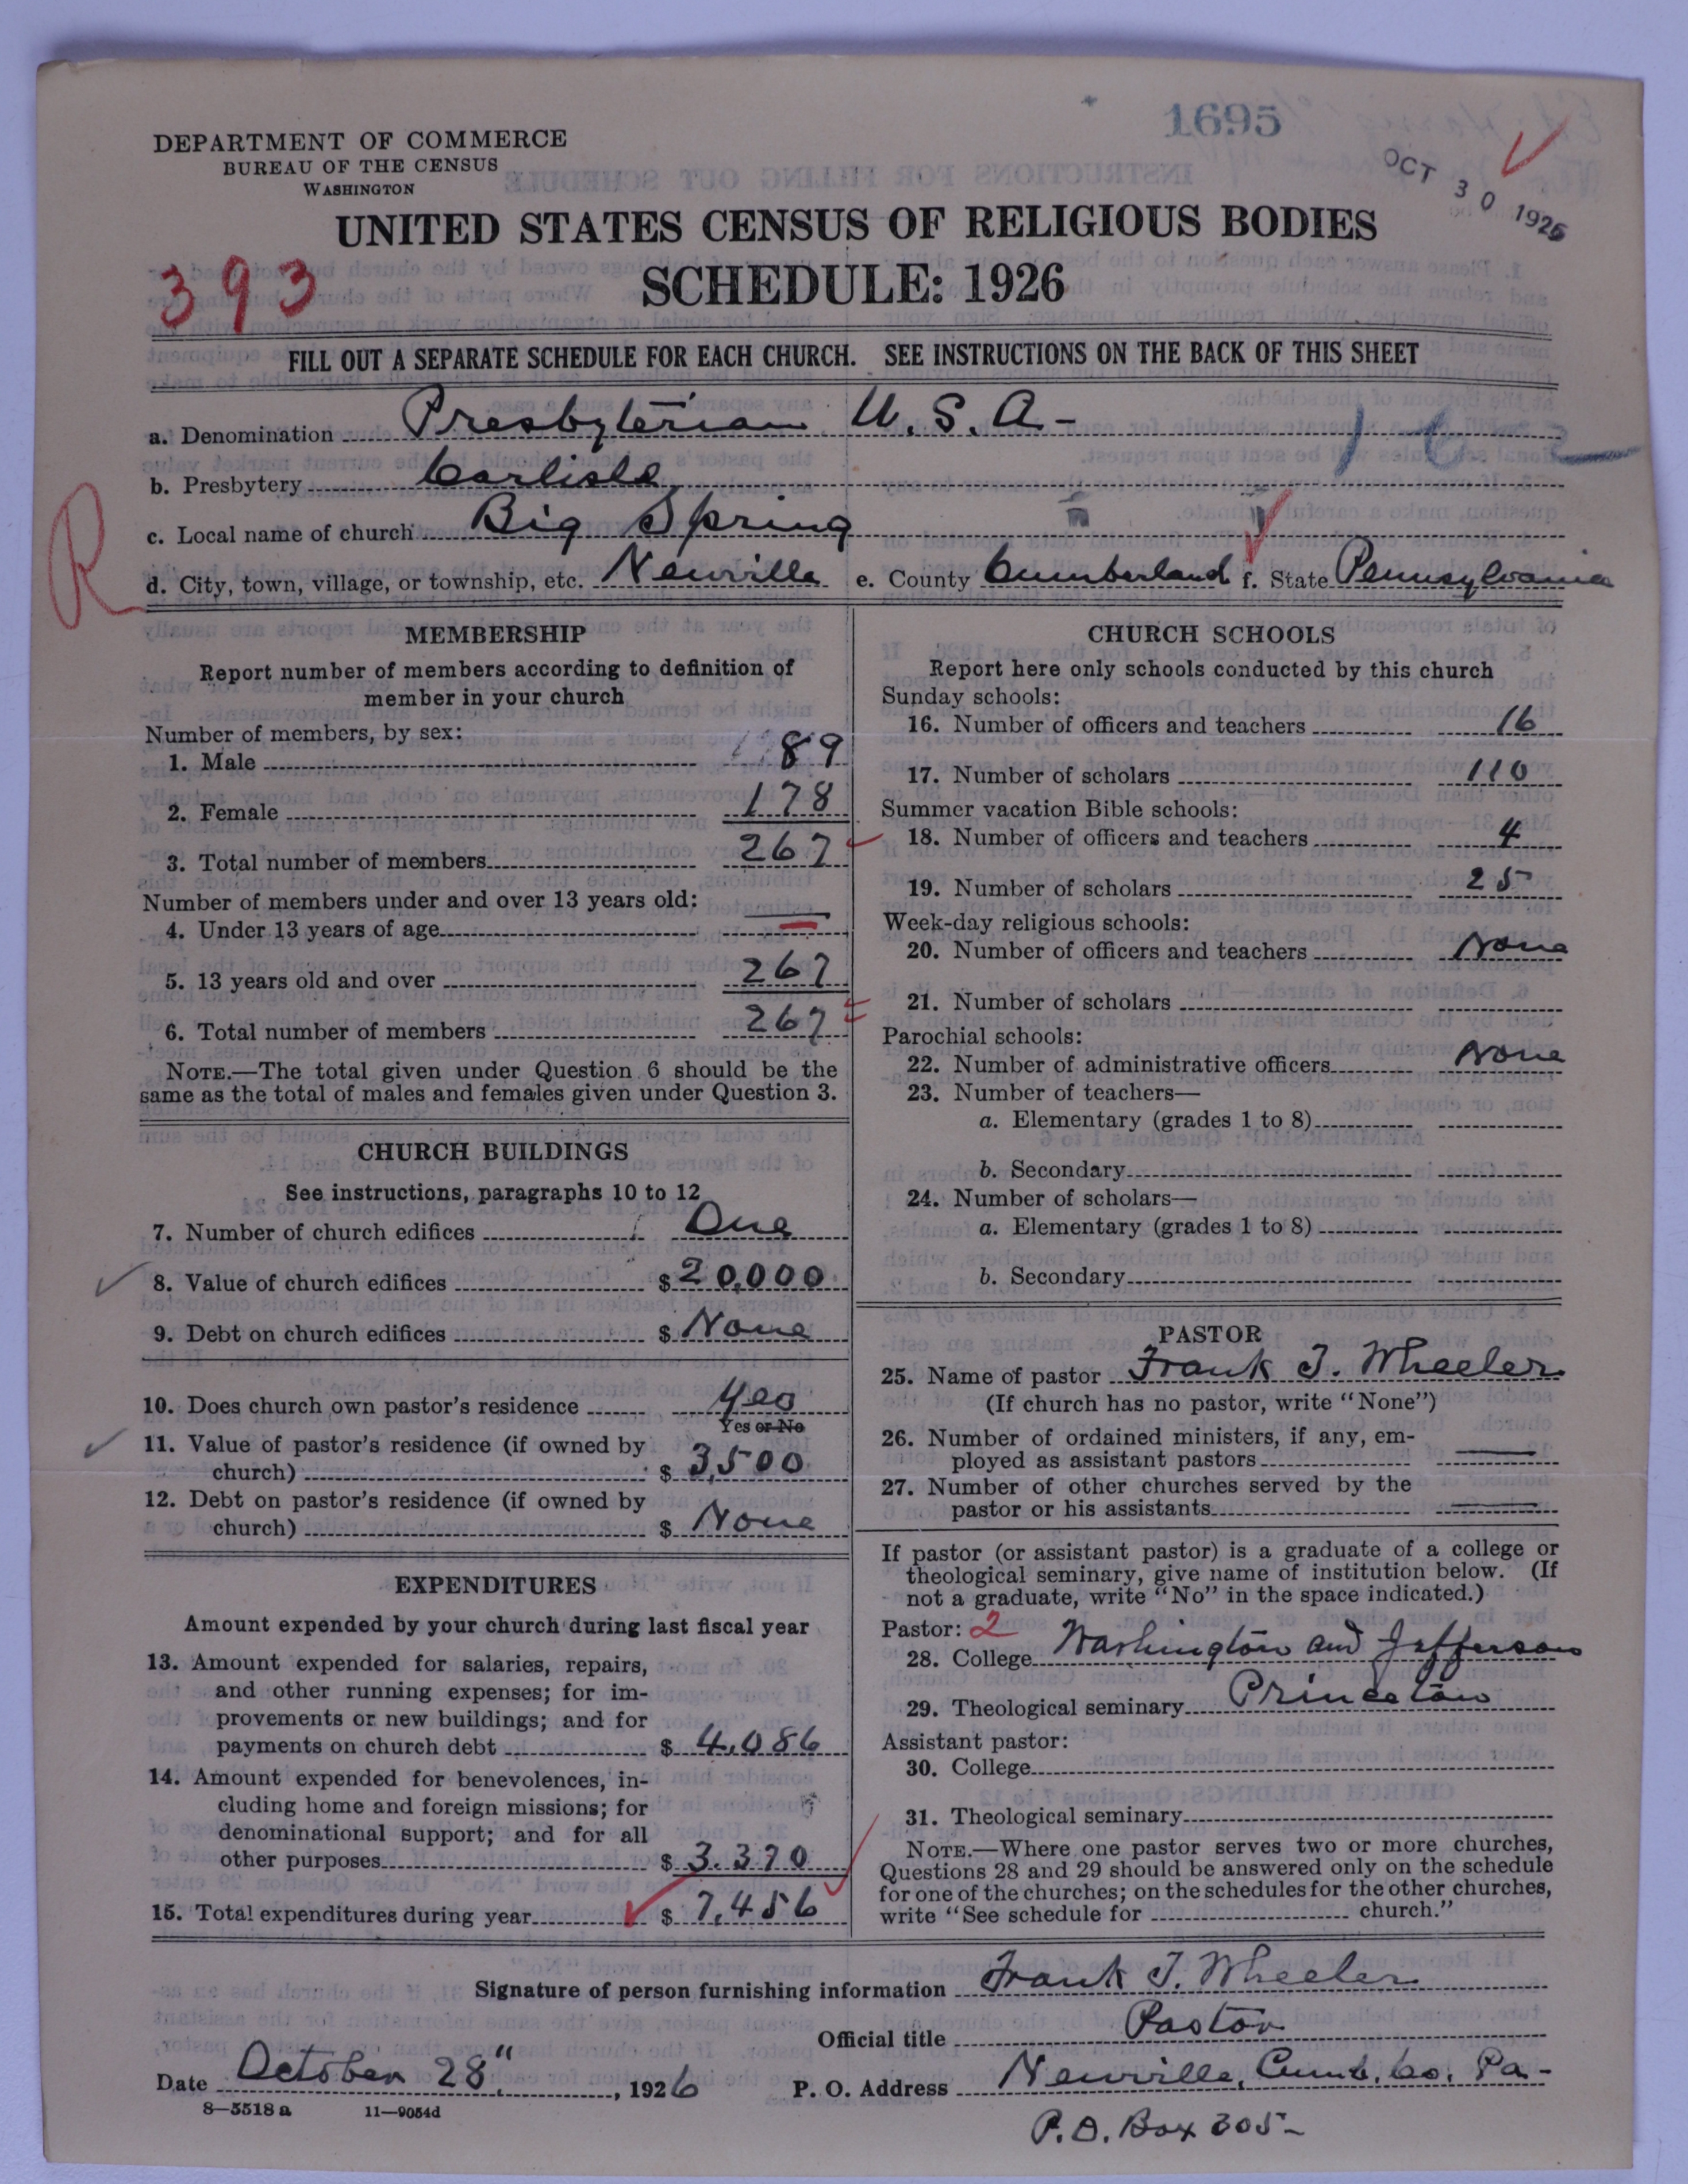 1695
OCT 30 1926
DEPARTMENT OF COMMERCE
BUREAU OF THE CENSUS
WASHINGTON
UNITED STATES CENSUS OF RELIGIOUS BODIES
393
SCHEDULE: 1926
FILL OUT A SEPARATE SCHEDULE FOR EACH CHURCH. SEE INSTRUCTIONS ON THE BACK OF THIS SHEET
a. Denomination Presbyterian U.S.A-
b. Presbytery Carlisle
R
c. Local name of church Big Spring
d. City, town, village, or township, etc. Newville e. County Cumberland f. State Pennsylvania
MEMBERSHIP
Report number of members according to definition of
member in your church
Number of members, by sex:
1. Male 89
2. Female 178
3. Total number of members 267
Number of members under and over 13 years old:
4. Under 13 years of age —
5. 13 years old and over 267
6. Total number of members 267
NOTE.—The total given under Question 6 should be the
same as the total of males and females given under Question 3.
CHURCH BUILDINGS
See instructions, paragraphs 10 to 12
7. Number of church edifices One
8. Value of church edifices $ 20,000
9. Debt on church edifices $ None
10. Does church own pastor's residence Yes
Yes or No
11. Value of pastor's residence (if owned by
church) $ 3,500
12. Debt on pastor's residence (if owned by
church) $ None
EXPENDITURES
Amount expended by your church during last fiscal year
13. Amount expended for salaries, repairs,
and other running expenses; for im-
provements or new buildings; and for
payments on church debt $ 4,086
14. Amount expended for benevolences, in-
cluding home and foreign missions; for
denominational support; and for all
other purposes $ 3.370
15. Total expenditures during year $ 7,456
CHURCH SCHOOLS
Report here only schools conducted by this church
Sunday schools:
16. Number of officers and teachers 16
17. Number of scholars 110
Summer vacation Bible schools:
18. Number of officers and teachers 4
19. Number of scholars 25
Week-day religious schools:
20. Number of officers and teachers None
21. Number of scholars
Parochial schools:
22. Number of administrative officers None
23. Number of teachers—
a. Elementary (grades 1 to 8)
b. Secondary
24. Number of scholars—
a. Elementary (grades 1 to 8)
b. Secondary
PASTOR
25. Name of pastor Frank T. Wheeler
(If church has no pastor, write "None")
26. Number of ordained ministers, if any, em-
ployed as assistant pastors —
27. Number of other churches served by the
pastor or his assistants —
If pastor (or assistant pastor) is a graduate of a college or
theological seminary, give name of institution below. (If
not a graduate, write "No" in the space indicated.)
Pastor: 2
28. College Washington and Jefferson
29. Theological seminary Princeton
Assistant pastor:
30. College
31. Theological seminary
NOTE.—Where one pastor serves two or more churches,
Questions 28 and 29 should be answered only on the schedule
for one of the churches; on the schedules for the other churches,
write "See schedule for church."
Signature of person furnishing information Frank T. Wheeler
Official title Pastor
Date October 28", 1926 P. O. Address Newville, Cumb. Co. Pa-
8—5518 a 11—9054d
P.O. Box 305-